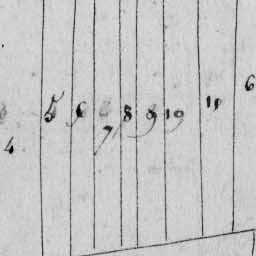 4 5 6 7 8 9 10 11 6